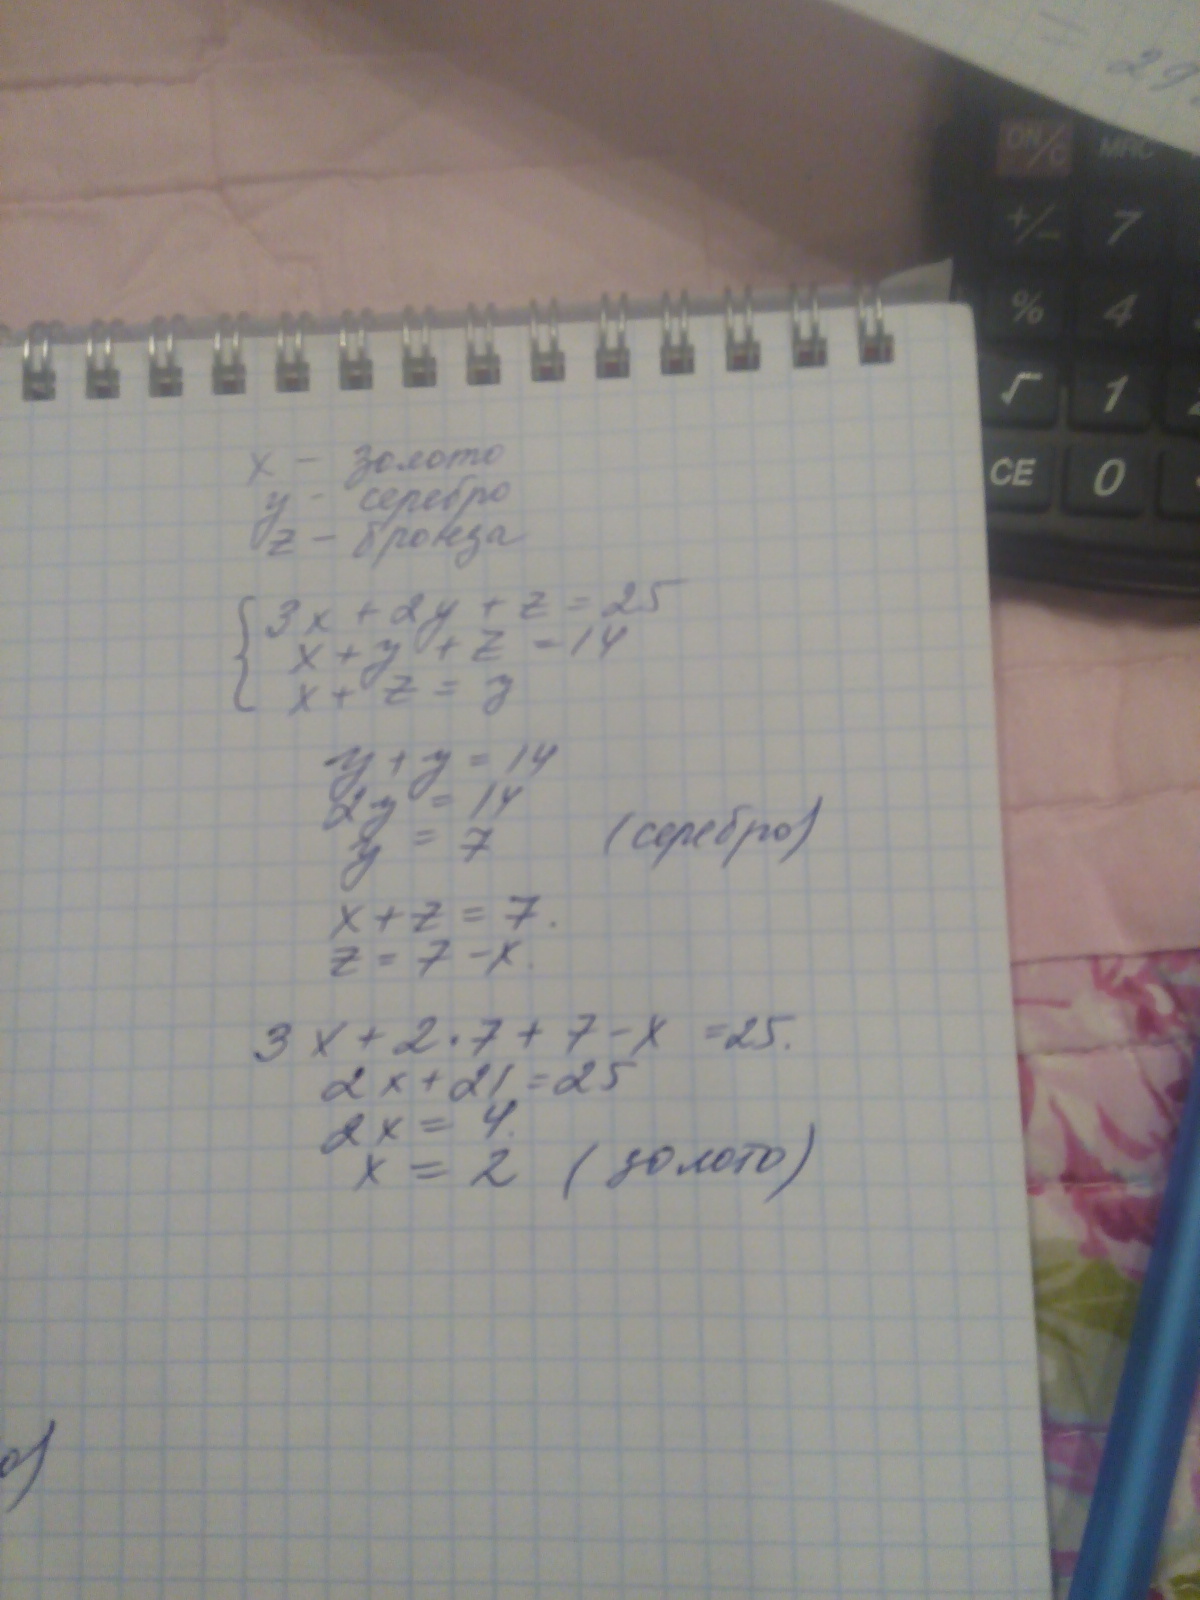 = 29
ON/C MRC
+/- 7
% 4
√ 1
CE 0
x - золото
y - серебро
z - бронза
{ 3x + 2y + z = 25
x + y + z = 14
x + z = y
y + y = 14
2y = 14
y = 7 (серебро)
x + z = 7.
z = 7 - x.
3x + 2·7 + 7 - x = 25.
2x + 21 = 25
2x = 4.
x = 2 (золото)
о)